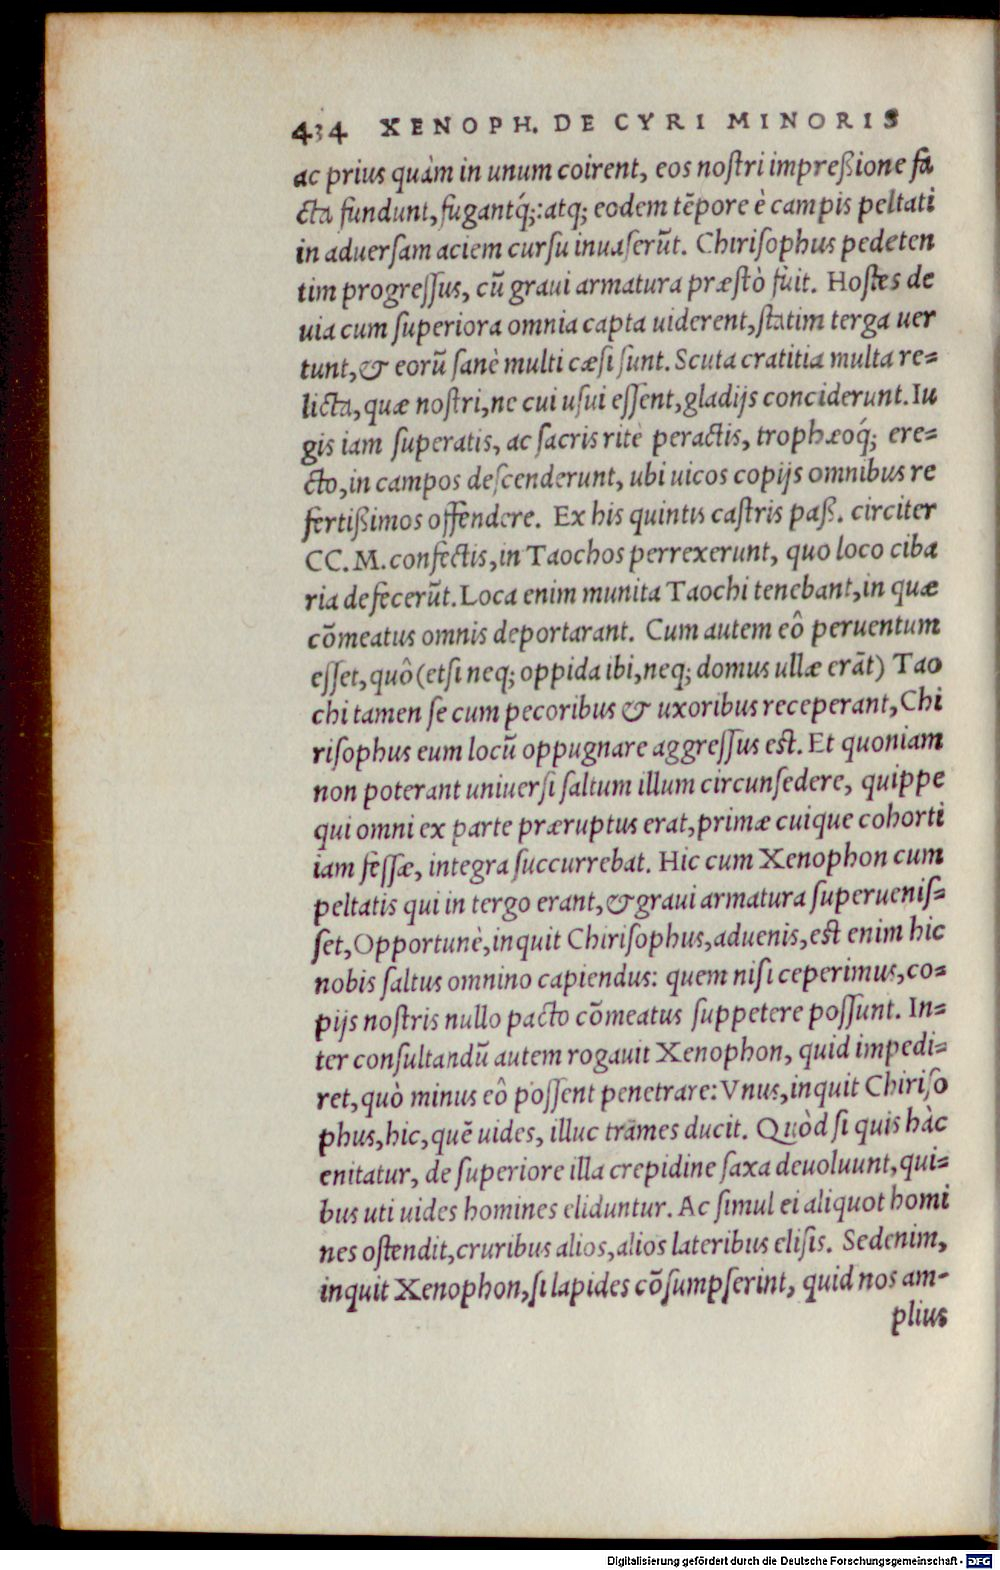 434 XENOPH. DE CYRI MINORIS
ac prius quàm in unum coirent, eos nostri impreßione fa
cta fundunt, fugantq́;: atq; eodem tēpore è campis peltati
in aduersam aciem cursu inuaserūt. Chirisophus pedeten
tim progressus, cū graui armatura præstò fuit. Hostes de
uia cum superiora omnia capta uiderent, statim terga uer
tunt, & eorū sanè multi cæsi sunt. Scuta cratitia multa re=
licta, quæ nostri, ne cui usui essent, gladijs conciderunt. Iu
gis iam superatis, ac sacris ritè peractis, trophæoq́; ere=
cto, in campos descenderunt, ubi uicos copijs omnibus re
fertißimos offendere. Ex his quintis castris paß. circiter
CC. M. confectis, in Taochos perrexerunt, quo loco ciba
ria defecerūt. Loca enim munita Taochi tenebant, in quæ
cōmeatus omnis deportarant. Cum autem eô peruentum
esset, quô (etsi neq; oppida ibi, neq; domus ullæ erāt) Tao
chi tamen se cum pecoribus & uxoribus receperant, Chi
risophus eum locū oppugnare aggressus est. Et quoniam
non poterant uniuersi saltum illum circunsedere, quippe
qui omni ex parte præruptus erat, primæ cuique cohorti
iam fessæ, integra succurrebat. Hic cum Xenophon cum
peltatis qui in tergo erant, & graui armatura superuenis=
set, Opportunè, inquit Chirisophus, aduenis, est enim hic
nobis saltus omnino capiendus: quem nisi ceperimus, co=
pijs nostris nullo pacto cōmeatus suppetere possunt. In=
ter consultandū autem rogauit Xenophon, quid impedi=
ret, quò minus eô possent penetrare: Vnus, inquit Chiriso
phus, hic, quē uides, illuc trames ducit. Quòd si quis hàc
enitatur, de superiore illa crepidine saxa deuoluunt, qui=
bus uti uides homines eliduntur. Ac simul ei aliquot homi
nes ostendit, cruribus alios, alios lateribus elisis. Sedenim,
inquit Xenophon, si lapides cōsumpserint, quid nos am-
plius
Digitalisierung gefördert durch die Deutsche Forschungsgemeinschaft - DFG